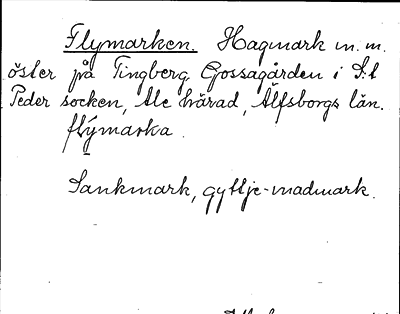 Flymarken. Hagmark m.m.
öster på Tingberg Gossagården i S:t
Peder socken, Ale härad, Älfsborgs län.
flýmarka.
Sankmark, gyttje-madmark.